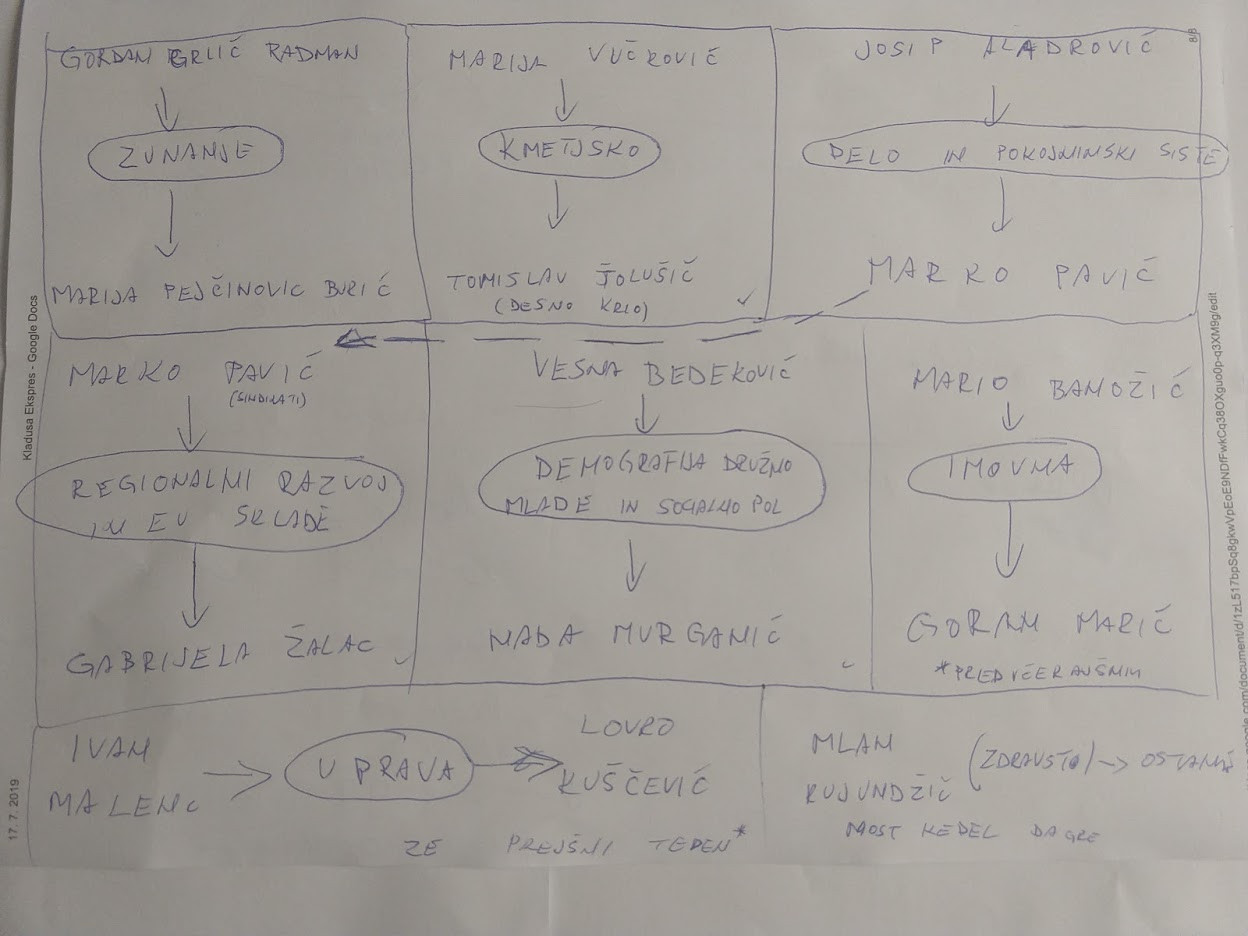 GORDAN GRLIĆ RADMAN
ZUNANJE
MARIJA PEJČINOVIC BURIĆ
MARIJA VUČKOVIĆ
KMETJSKO
TOMISLAV TOLUŠIĆ
(DESNO KRILO)
JOSIP ALADROVIĆ
DELO IN POKOJNINSKI SISTE
MARKO PAVIĆ
MARKO PAVIĆ
(SINDIKATI)
REGIONALNI RAZVOJ
IN EU SKLADE
GABRIJELA ŽALAC
VESNA BEDEKOVIĆ
DEMOGRAFIJA DRUŽINO
MLADE IN SOCIALNO POL
NADA MURGANIĆ
MARIO BANOŽIĆ
IMOVINA
GORAN MARIĆ
*PREDVČERAJŠNJIM
IVAN
MALENC
UPRAVA
LOVRO
KUŠČEVIĆ
ZE PREJŠNI TEDEN*
MLAN
KUJUNDŽIČ
(ZDRAVSTO) → OSTANE
MOST
DA GRE
Kladusa Ekspres - Google Docs
17. 7. 2019
8/8
google.com/document/d/1zL517bpSq8gkwVpEoE9NDfFwkCq38OXguo0p-q3XM9g/edit